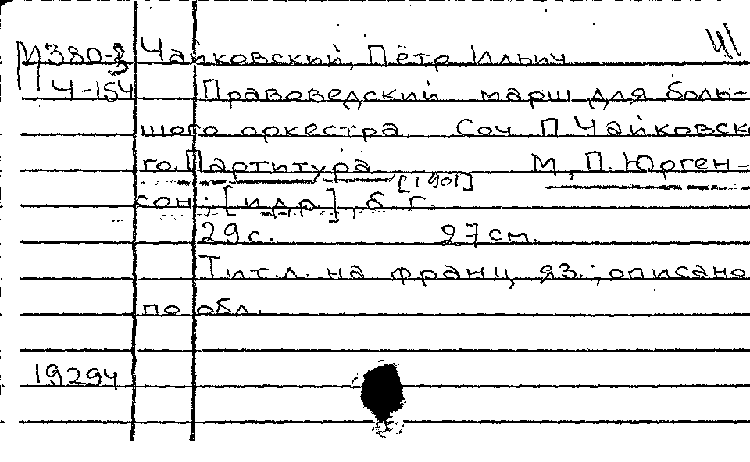 М380-3 Чайковский, Пётр Ильич
Ч-154 Правоведский марш для боль-
шого оркестра Соч. П. Чайковск
го. Партитура М., П. Юрген-
[1901]
сон; [и др.], б. г.
29 с. 27 см.
Тит. л. на франц. яз.; описано
по обл.
19294